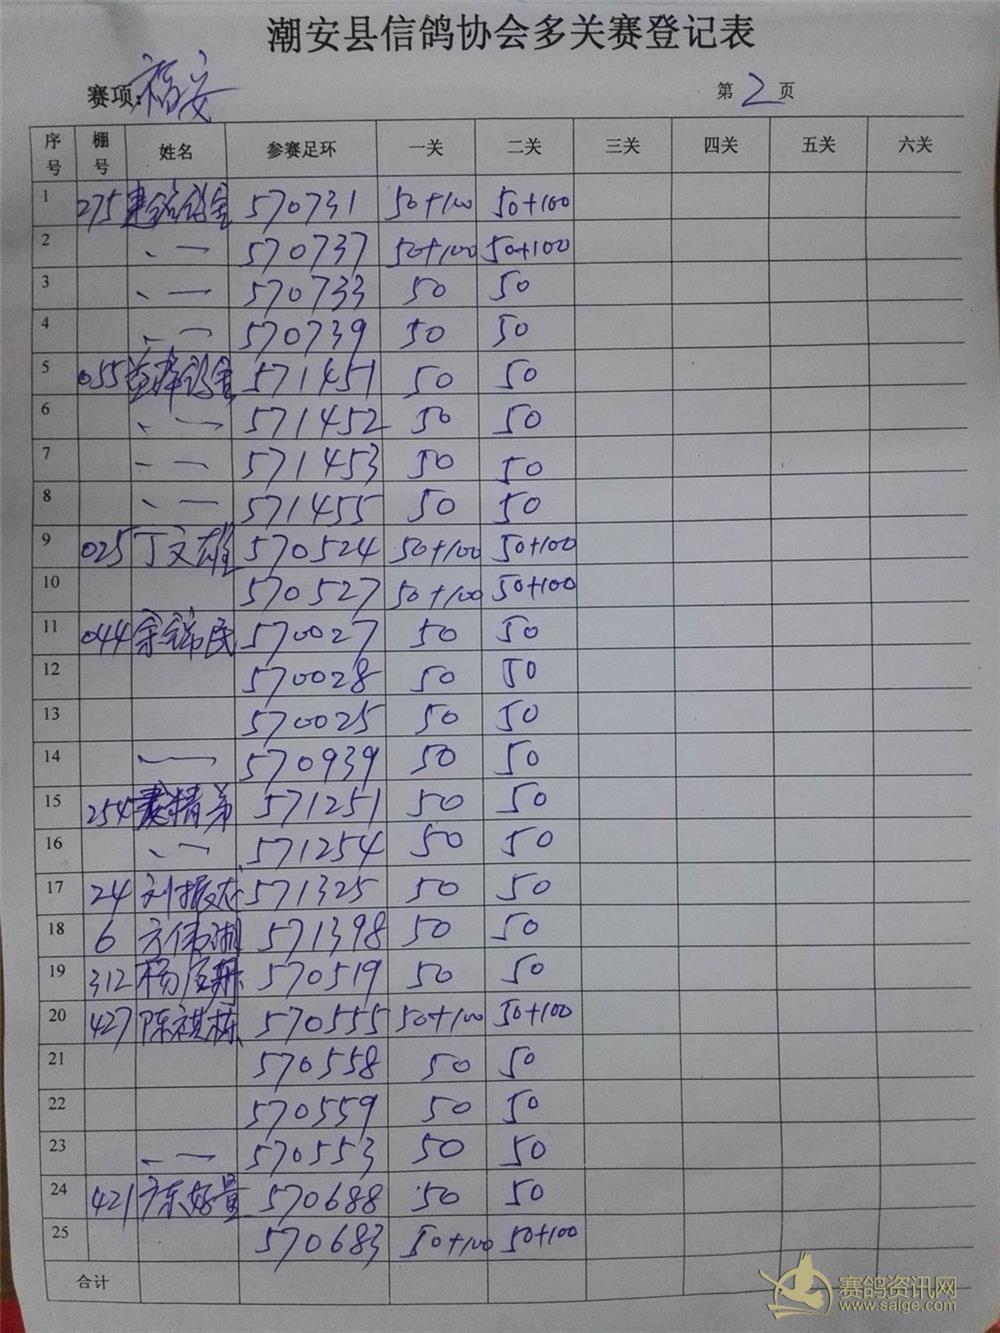 潮安县信鸽协会多关赛登记表
赛项: 福安 第 2 页
序号 棚号 姓名 参赛足环 一关 二关 三关 四关 五关 六关
1 275 建铭鸽舍 570731 50+100 50+100
2 、一 570737 50+100 50+100
3 、一 570733 50 50
4 、一 570739 50 50
5 055 鸽舍 571451 50 50
6 、一 571452 50 50
7 、一 571453 50 50
8 、一 571455 50 50
9 025 丁文雄 570524 50+100 50+100
10 570527 50+100 50+100
11 044 余锦民 570027 50 50
12 570028 50 50
13 570025 50 50
14 、一 570939 50 50
15 254 精弟 571251 50 50
16 、一 571254 50 50
17 24 刘振 571325 50 50
18 6 方伟湖 571398 50 50
19 312 杨 570519 50 50
20 427 陈祺栋 570555 50+100 50+100
21 570558 50 50
22 570559 50 50
23 、一 570553 50 50
24 421 广东好量 570688 50 50
25 570683 50+100 50+100
合计
赛鸽资讯网
www.saige.com